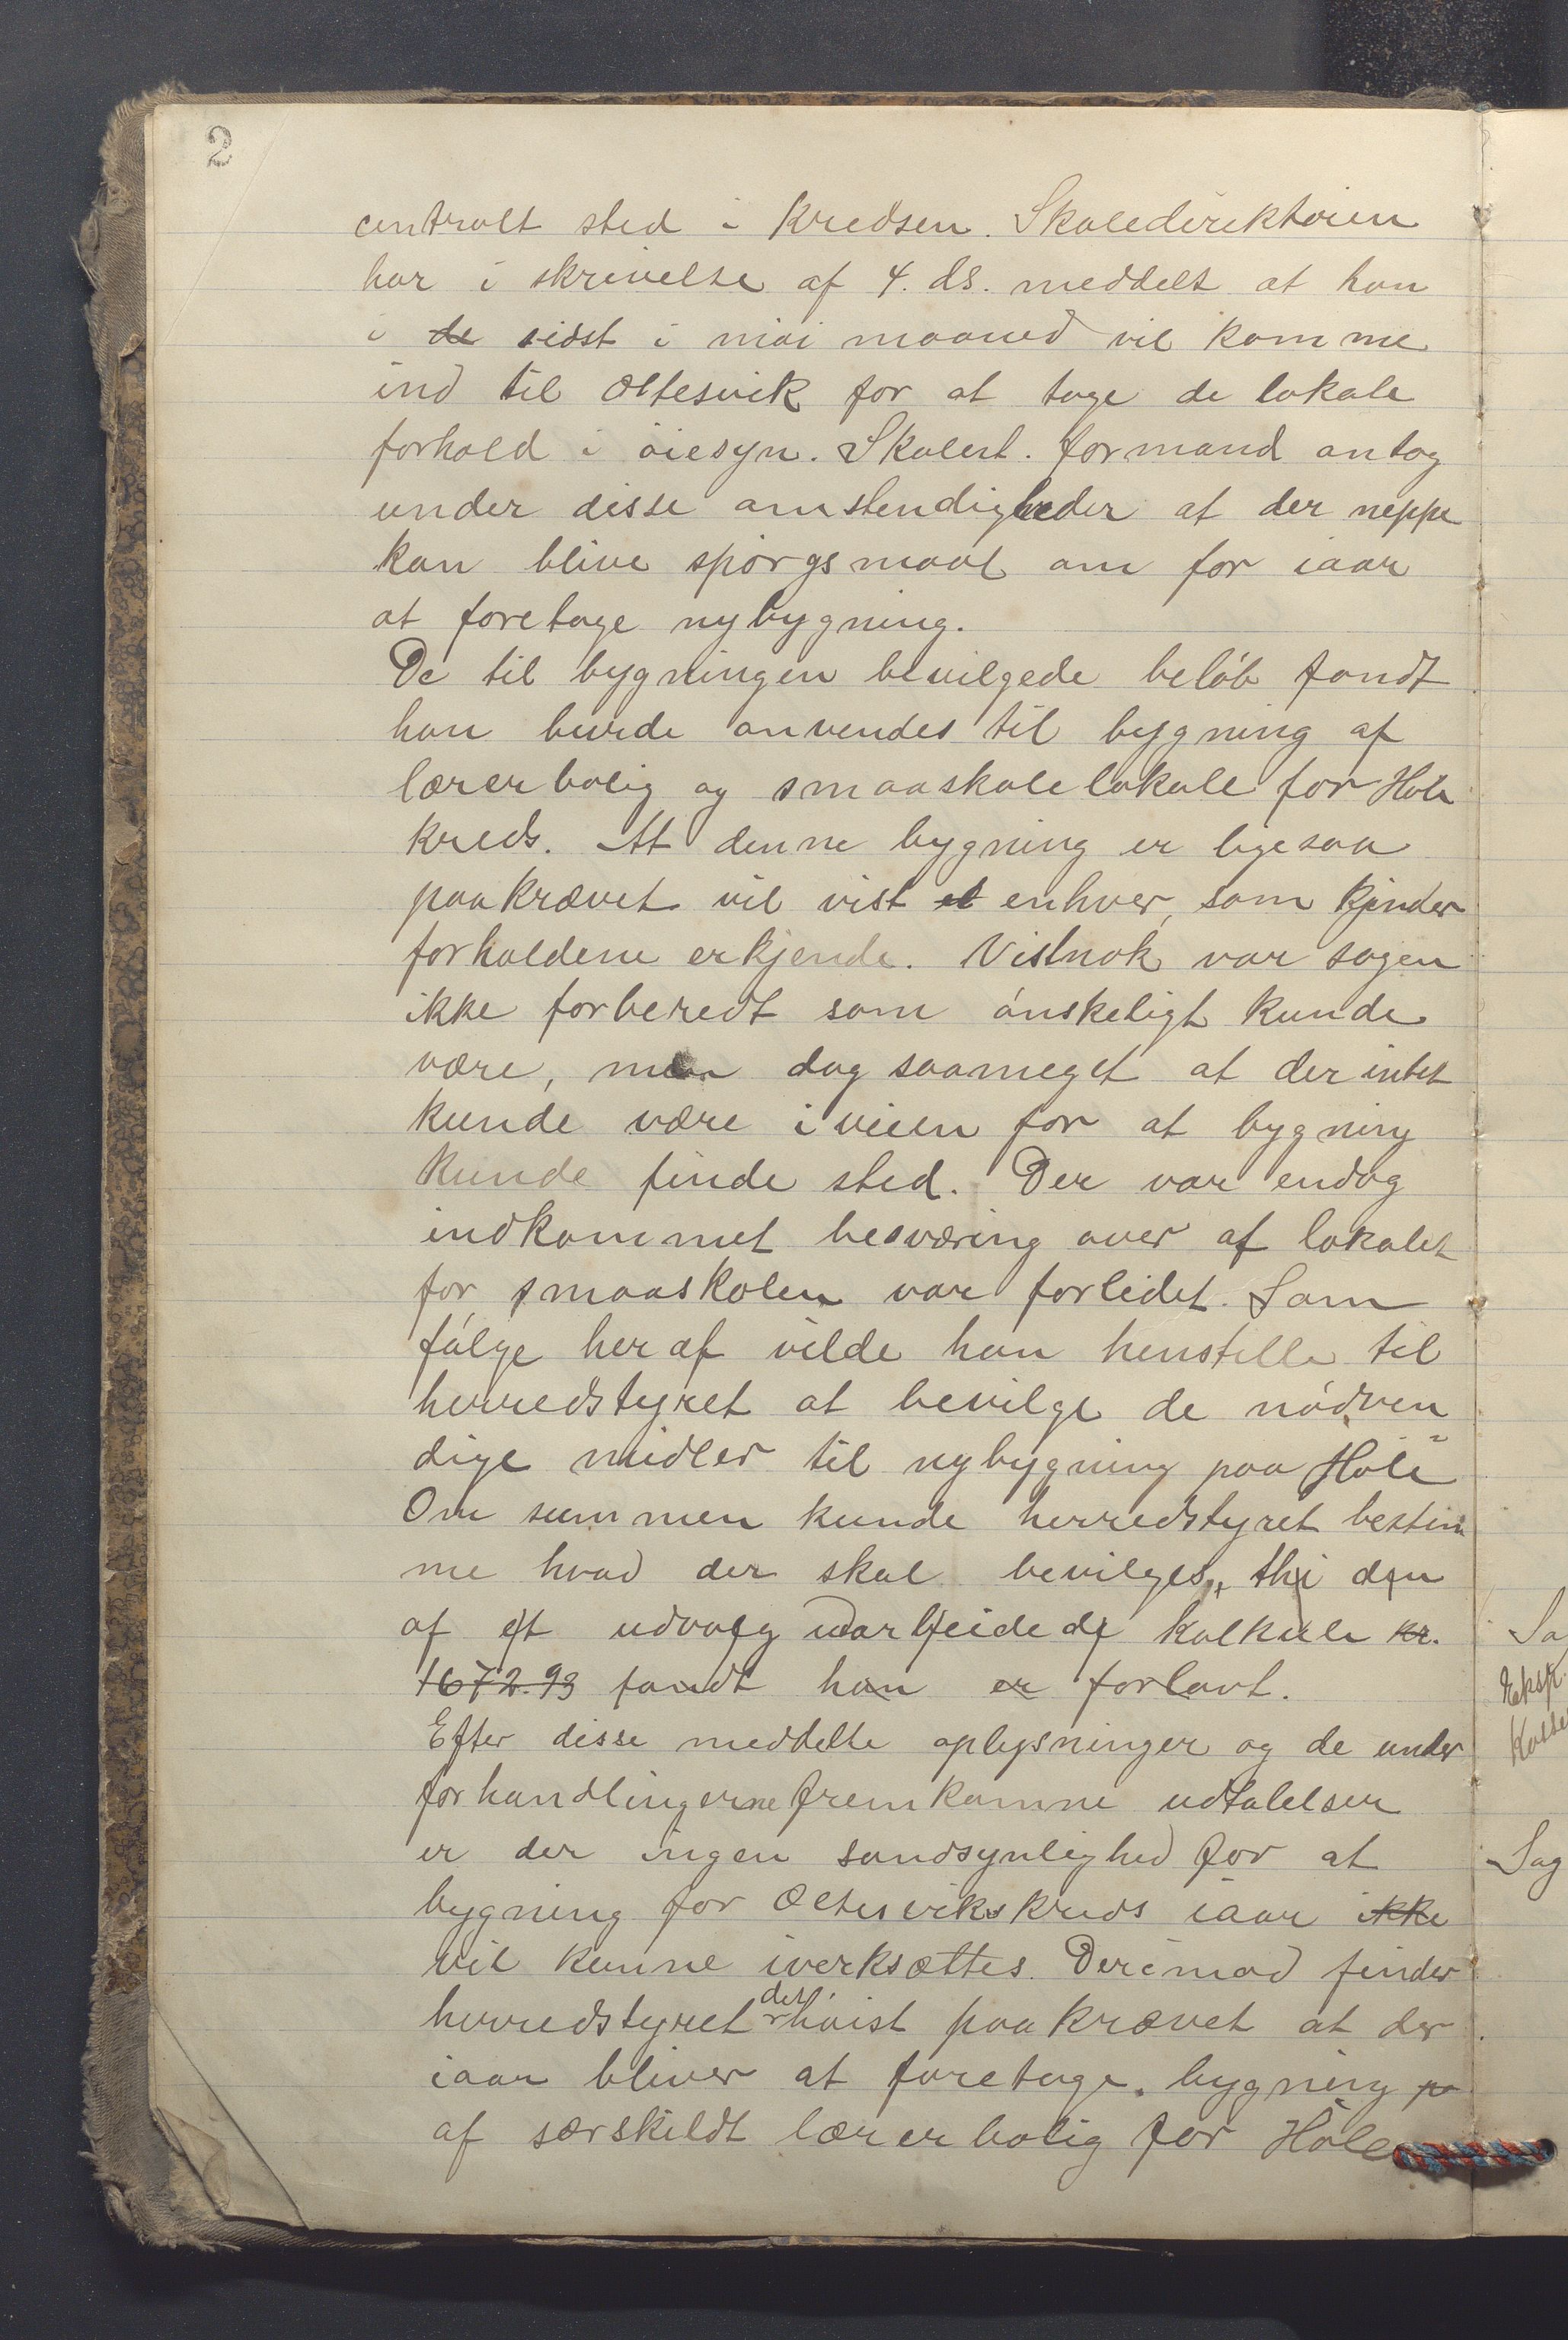 2
centralt sted i kredsen. Skoledirektøren
har i skrivelse af 4. ds. meddelt at han
i de sidst i mai maaned vil komme
ind til Oltesvik for at tage de lokale
forhold i øiesyn. Skolest. formand antog
under disse omstendigheder at der neppe
kan blive spørgsmaal om for iaar
at foretage nybygning.
De til bygningen bevilgede beløb fandt
han burde anvendes til bygning af
lærerbolig og smaaskolelokale for Høle
kreds. At denne bygning er ligesaa
paakrævet vil vist et enhver, som kjender
forholdene erkjende. Vistnok var sagen
ikke forberedt som ønskeligt kunde
være, men dog saameget at der intet
kunde være iveien for at bygning
kunde finde sted. Der var endog
indkommet besværing over at lokalet
for smaaskolen var forlidet. Som
følge heraf vilde han henstille til
herredstyret at bevilge de nødven
dige midler til nybygning paa Høle
Om summen kunde herredstyret bestem
me hvad der skal bevilges, thi den
af et udvalg udarbeidede kalkule kr.
1672.93 fandt han er forlavt.
Efter disse meddelte oplysninger og de under
forhandlingerne fremkomne udtalelser
er der ingen sandsynlighed for at
bygning for Oltesvikskreds iaar ikke
vil kunne iverksættes. Derimod finder
herredstyret det høist paakrævet at der
iaar bliver at foretage bygning pa
af særskildt lærerbolig for Høle
Sa
Eksp.
Sag